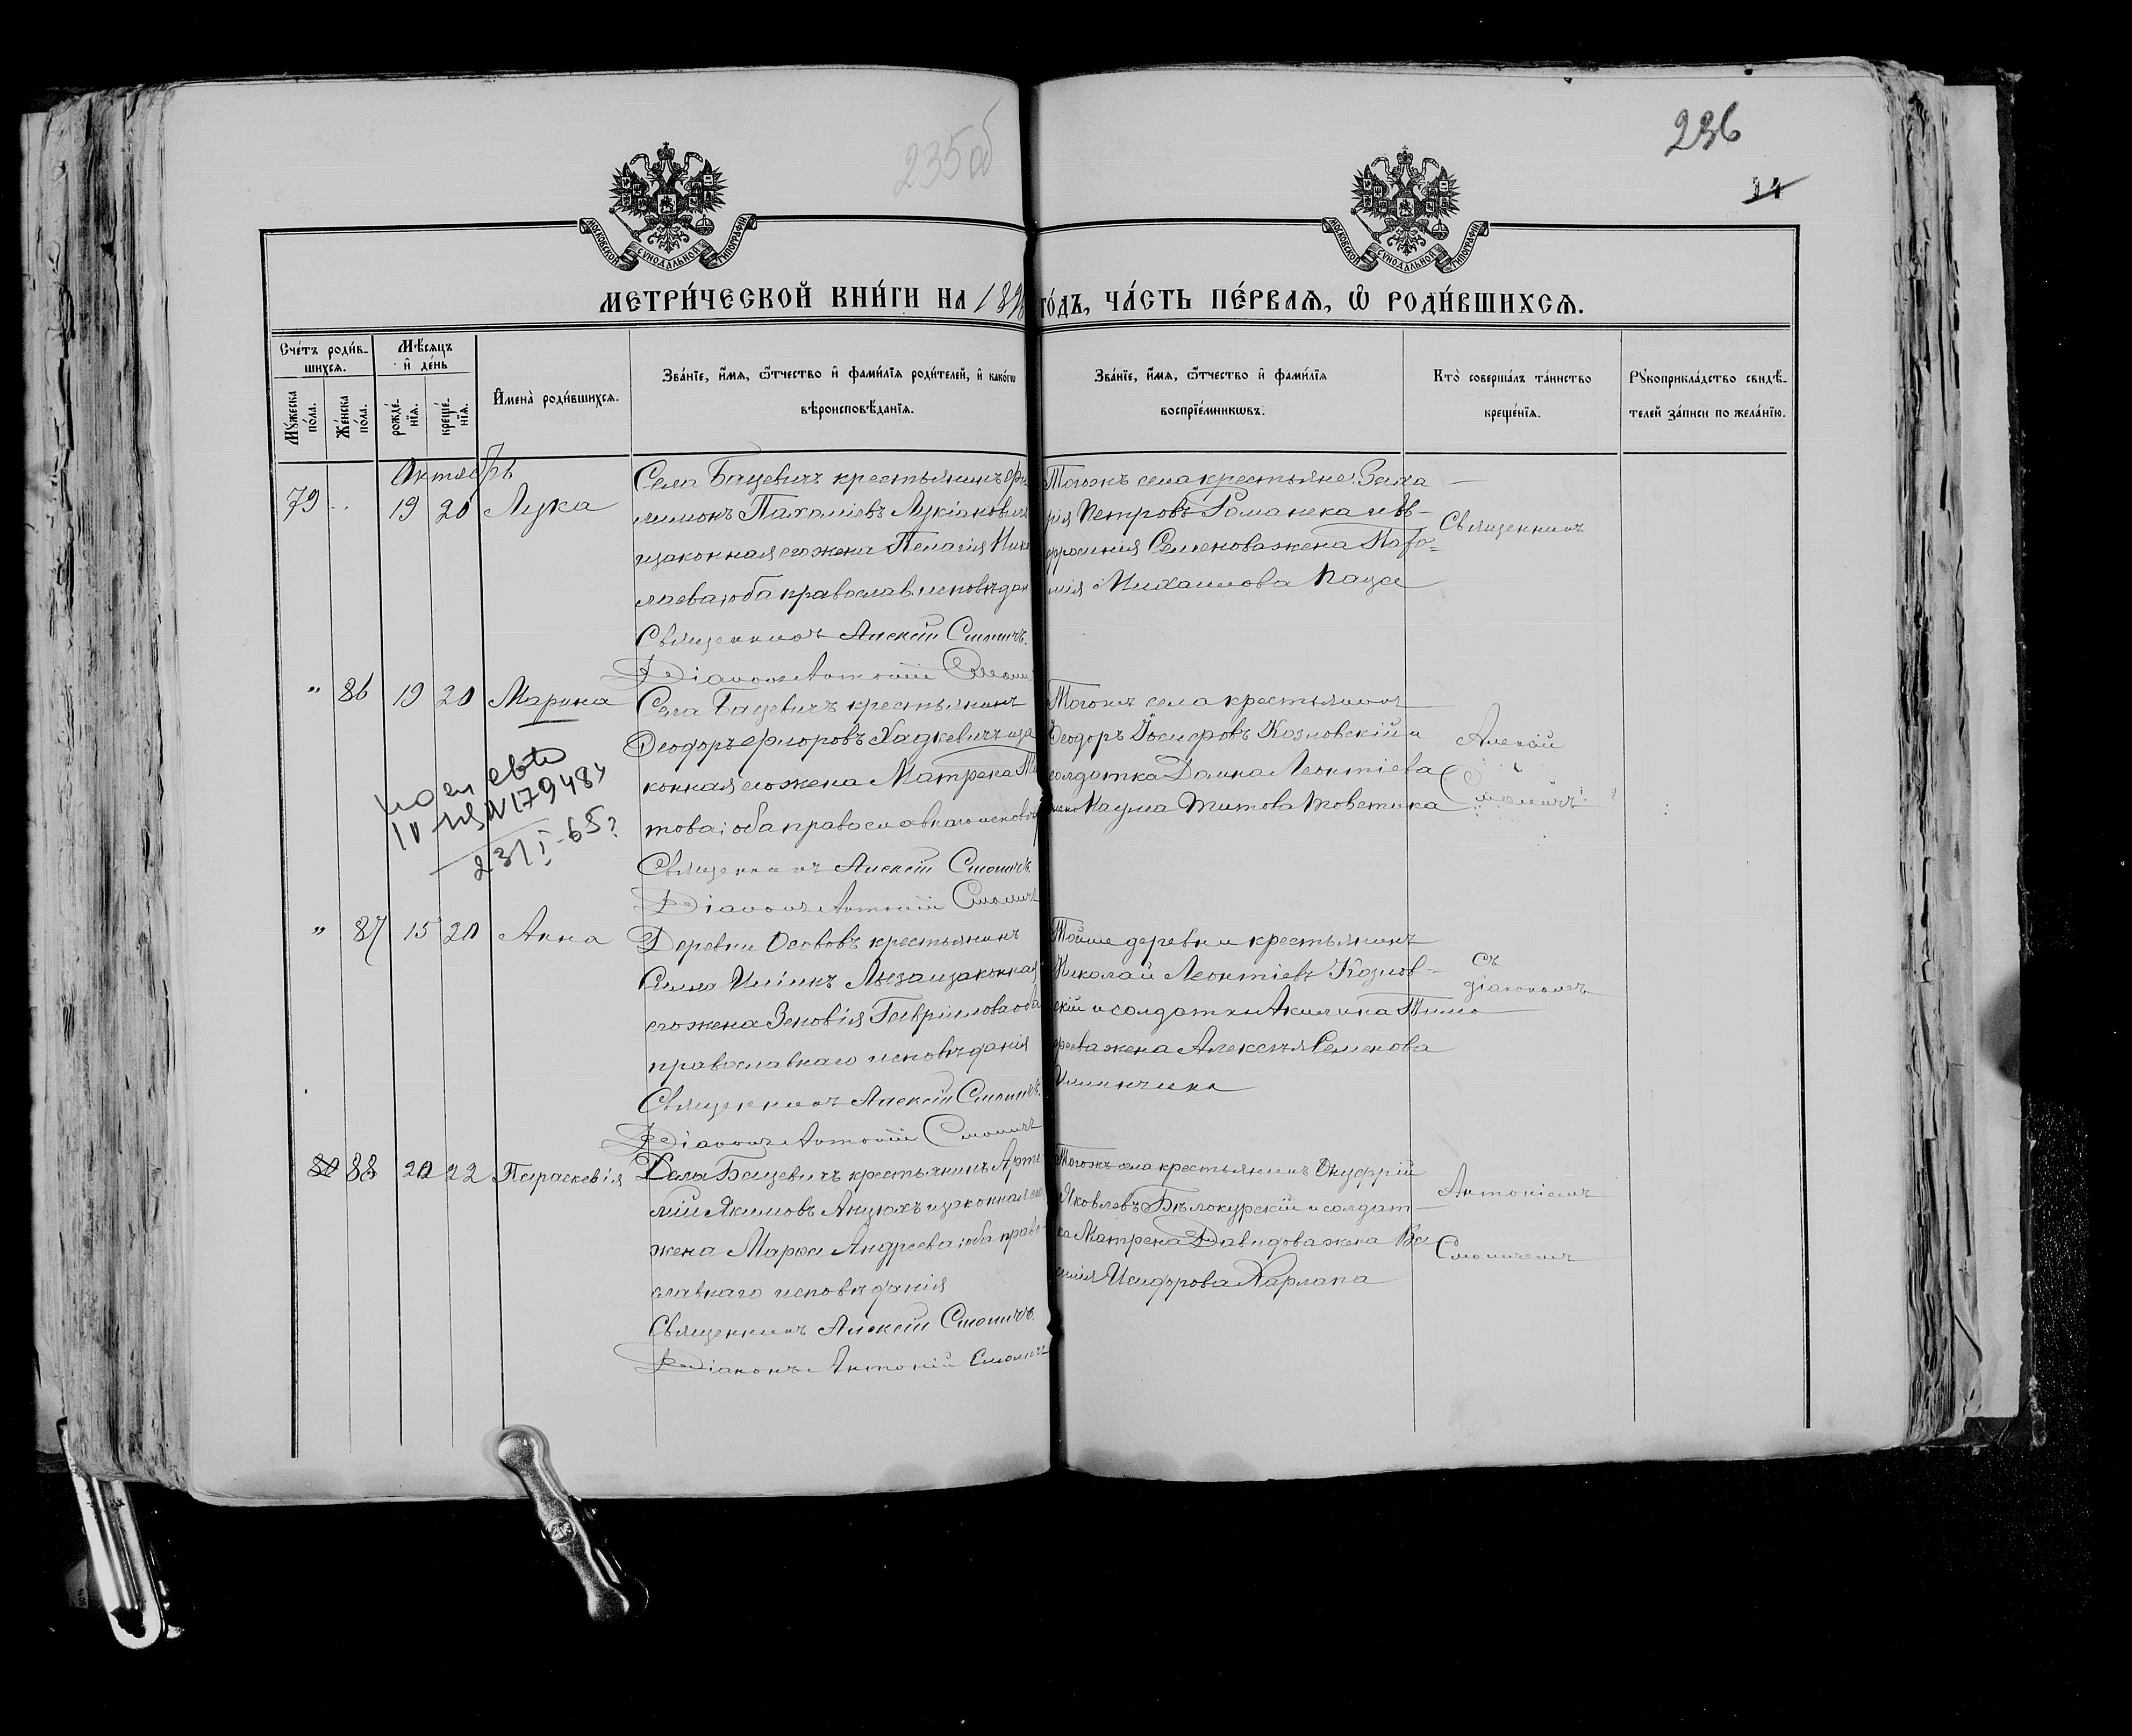 235об
236
14
МОСКОВСКОЙ СУНОДАЛЬНОЙ ТИПОГРАФІИ
МОСКОВСКОЙ СУНОДАЛЬНОЙ ТИПОГРАФІИ
МЕТРИ́ЧЕСКОЙ КНИ́ГИ НА 189 ГО́ДЪ, ЧА́СТЬ ПЕ́РВАѦ, Ѡ҆ РОДИ́ВШИХСѦ.
Сче́тъ роди́в-
шихсѧ.
Мꙋ́жеска по́ла.
Же́нска по́ла.
Мѣ́сѧцъ
и҆ де́нь
рожде́-нїѧ.
креще́-нїѧ.
И҆мена̀ роди́вшихсѧ.
Зва́нїе, и҆́мѧ, ѻ҆́тчество и҆ фами́лїѧ роди́телей, и҆ како́гѡ
вѣроисповѣ́данїѧ.
Зва́нїе, и҆́мѧ, ѻ҆́тчество и҆ фами́лїѧ
воспрїе́мникѡвъ.
Кто̀ соверша́лъ та́инство
креще́нїѧ.
Рꙋкоприкла́дство свидѣ́-
телей за́писи по жела́нїю.
Октябрь
79 19 20 Лука
Села Бацевичъ крестьянинъ Фи-
лимонъ Пахоміевъ Лукіановичъ
и законная его жена Пелагія Нико
лаева; оба православ. исповѣдан
Священникъ Алексій Смоличъ.
Діаконъ Антоній Смоличъ
Тогожъ села крестьяне: Заха
рія Петровъ Романека и Ев-
фросинія Семенова жена
Михаилова
Священникъ
" 86 19 20 Марина
Села Бацевичъ крестьянинъ
Ѳеодоръ Флоровъ Хадкевичъ и за
конная его жена Матрена Ти
това; оба православнаго исповѣд
Священникъ Алексій Смоличъ.
Діаконъ Антоній Смоличъ
Тогожъ села крестьянинъ
Ѳеодоръ Іосифовъ Козловскій и
солдатка Домна Леонтіева
жена Наума Титова
Алексій
Смоличъ
179484
" 87 15 20 Анна
Деревни Осововъ крестьянинъ
Сила Ильинъ и законная
его жена Зеновія Гавріилова оба
православнаго исповѣданія
Священникъ Алексій Смоличъ.
Діаконъ Антоній Смоличъ
Тойже деревни крестьянинъ
Николай Леонтіевъ Козлов-
скій и солдатка Акилина Тимо
феева жена Алексѣя Семенова
съ
діакономъ
80 88 20 22 Параскевія
Села Бацевичъ крестьянинъ Арте
мій Якимовъ Анцюхъ и законная его
жена Марѳа Андреева; оба право-
славнаго исповѣданія
Священникъ Алексій Смоличъ.
Діаконъ Антоній Смоличъ
Тогожъ села крестьянинъ Онуфрій
Яковлевъ Бѣлокурскій и солдат-
ка Матрена Давидова жена Ва
силія Исидорова Харлапа
Антоніемъ
Смоличемъ